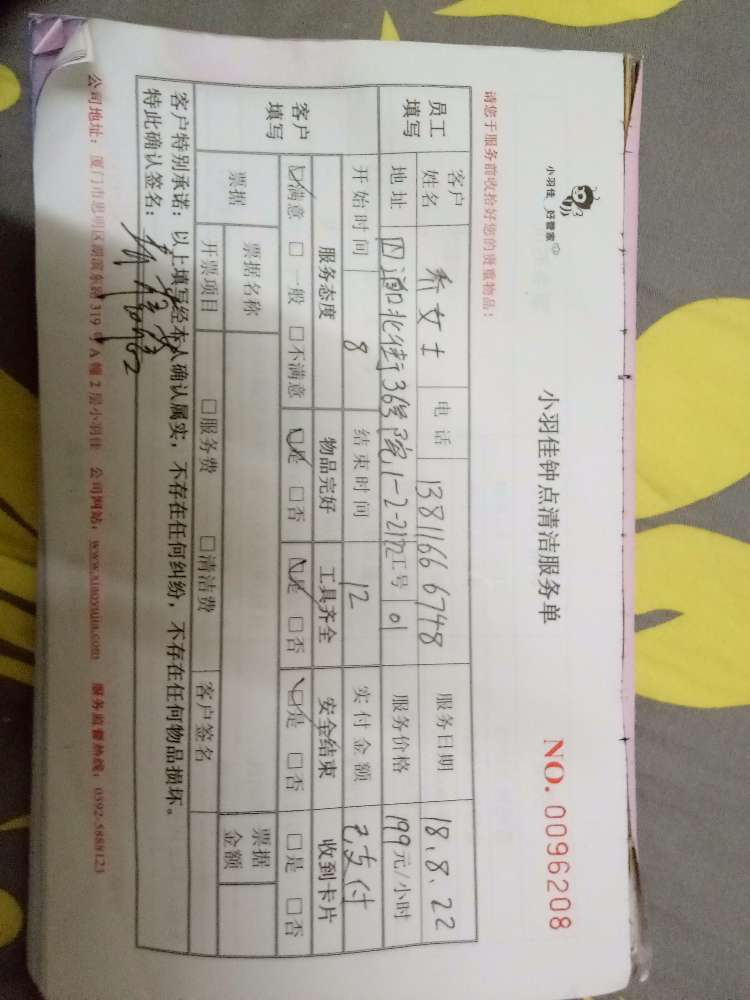 小羽佳 好管家
小羽佳钟点清洁服务单
NO. 0096208
请您于服务前收拾好您的贵重物品：
员工填写 客户姓名 乔女士 电话 13811666748 服务日期 18.8.22
地址 北街36号院1-2-2172 工号 01 服务价格 199元/小时
开始时间 8 结束时间 12 实付金额 已支付
客户填写 服务态度 物品完好 工具齐全 安全结束 收到卡片
☑满意 □一般 □不满意 ☑是 □否 ☑是 □否 ☑是 □否 □是 □否
票据 票据名称 票据金额
开票项目 □服务费 □清洁费 客户签名
客户特别承诺：以上填写经本人确认属实，不存在任何纠纷，不存在任何物品损坏。
特此确认签名：
公司地址：厦门市思明区湖滨东路319号A幢2层小羽佳 公司网站：www.xiaoyujia.com 服务监督热线：0592-5888123